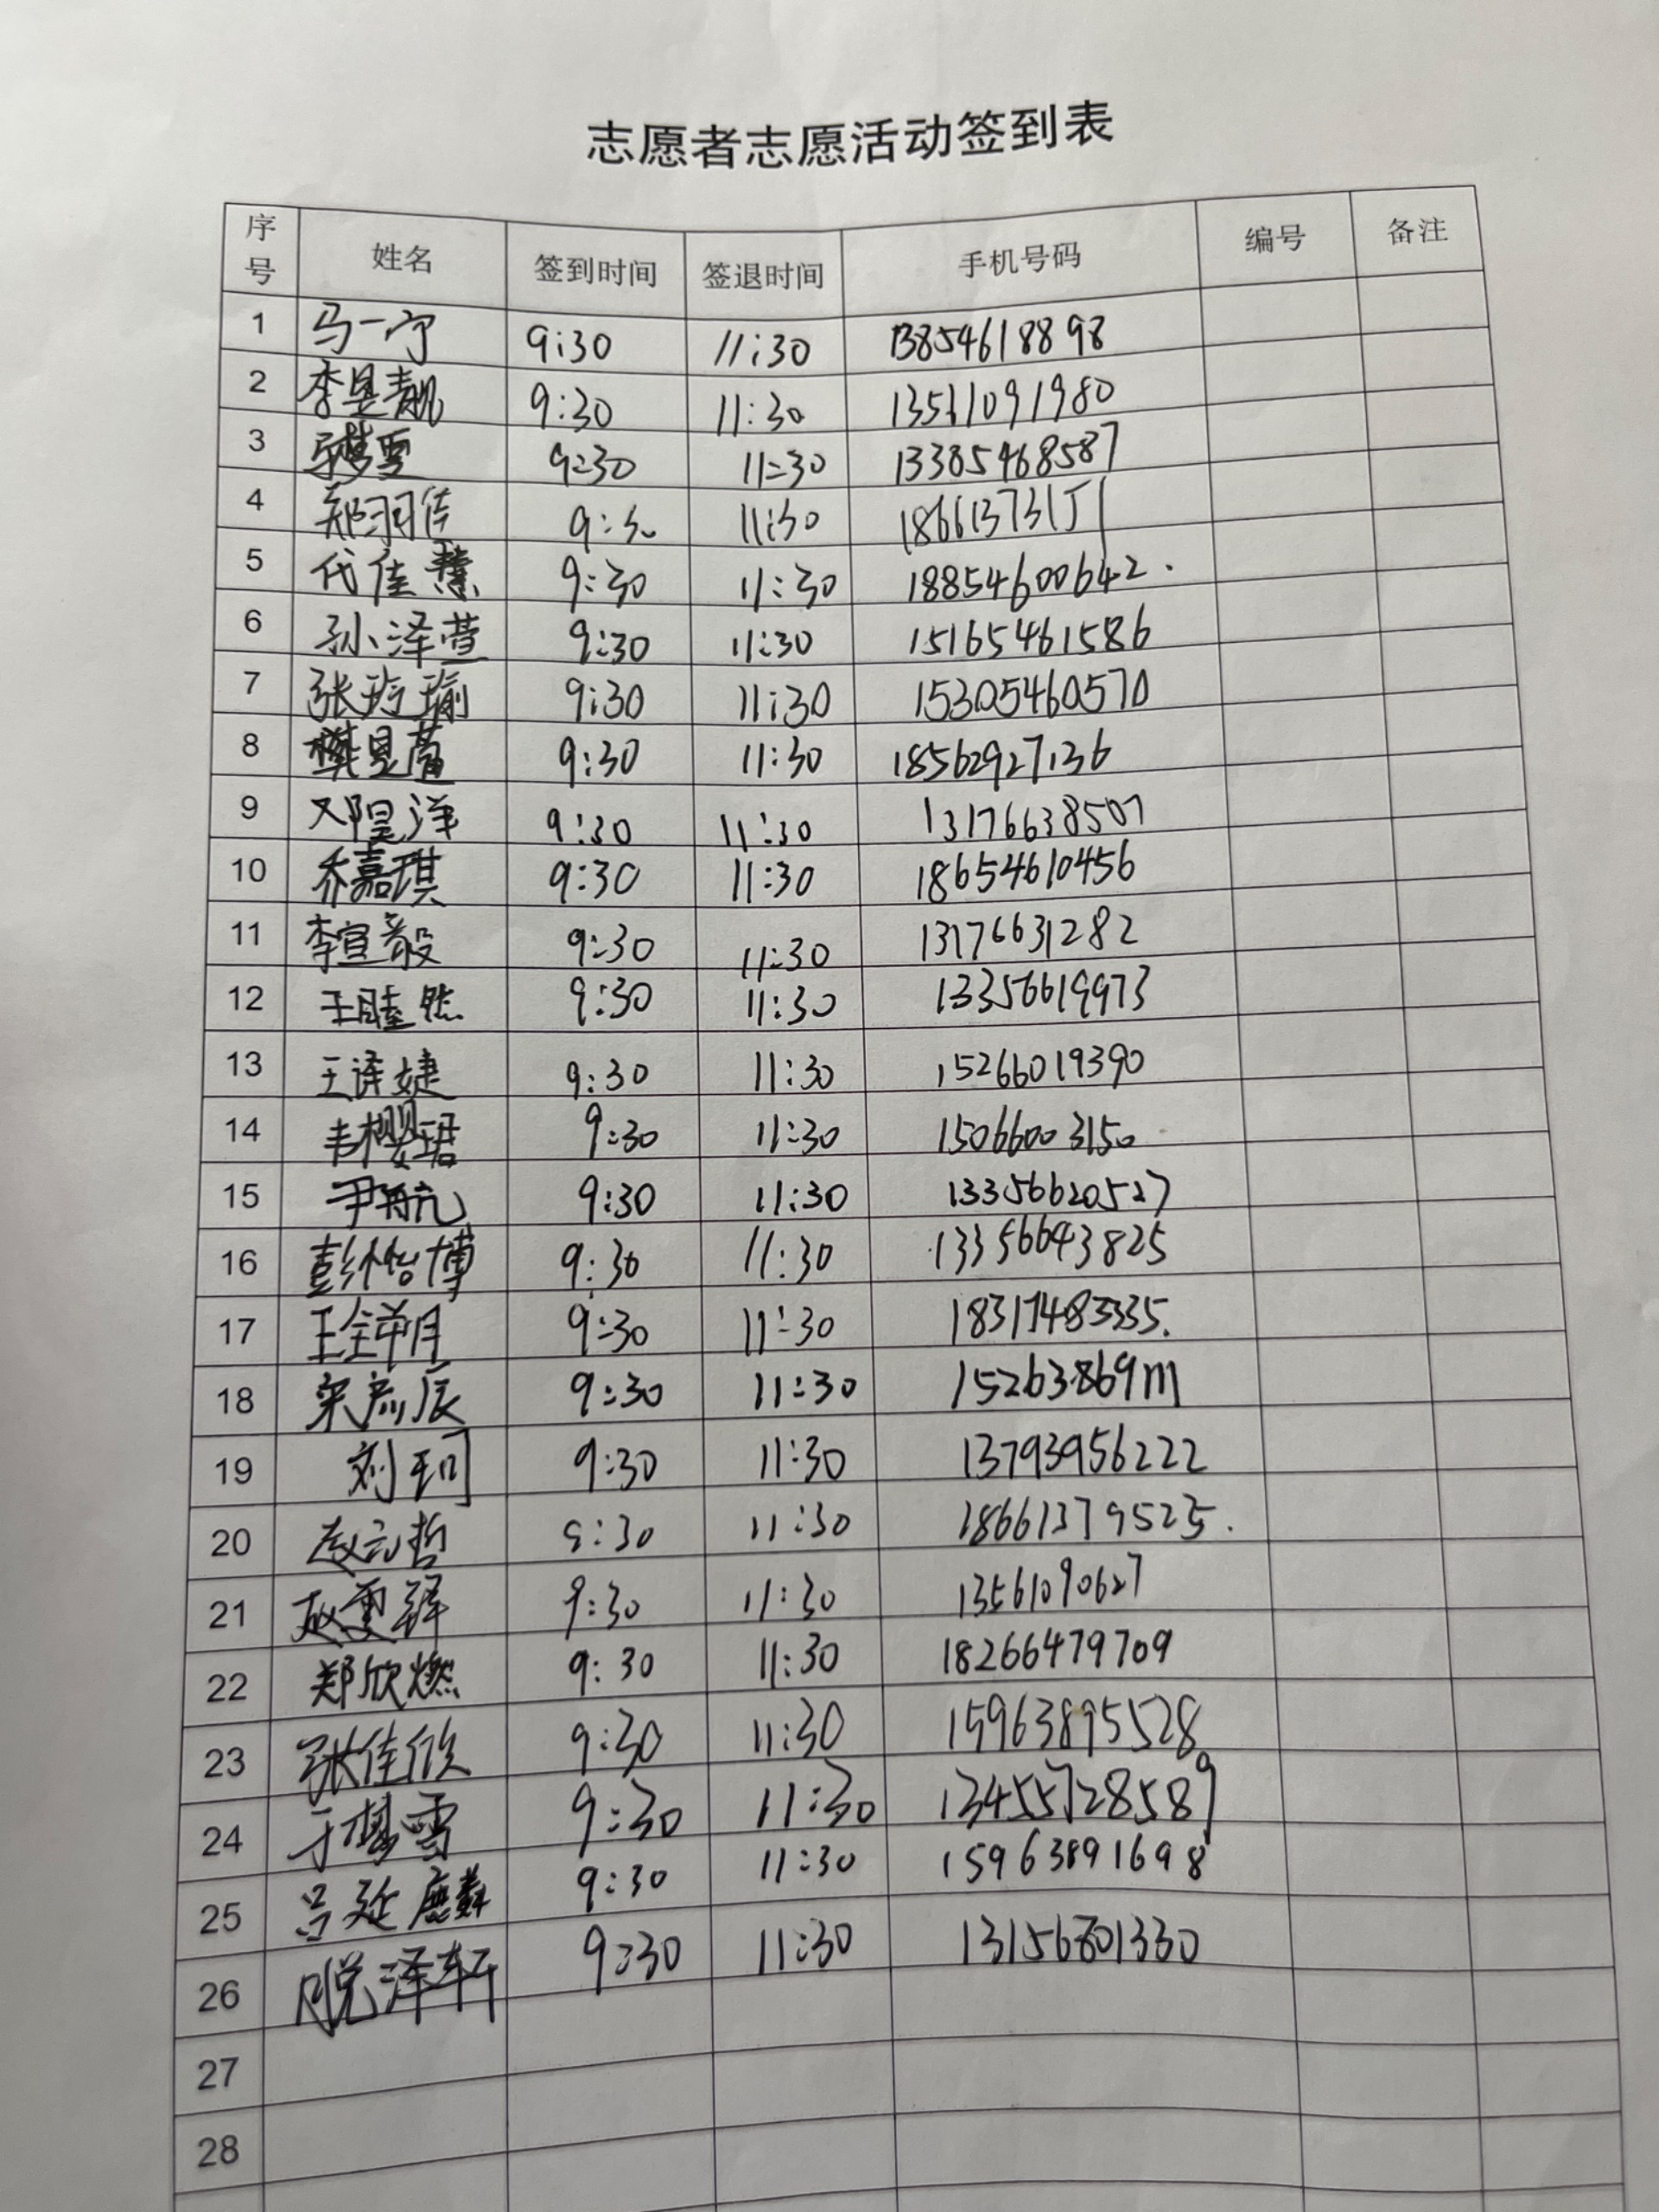 志愿者志愿活动签到表
序号 姓名 签到时间 签退时间 手机号码 编号 备注
1 马一宁 9:30 11:30 13854618898
2 李昱靓 9:30 11:30 13561091980
3 9:30 11:30 13385468587
4 郑羽佳 9:30 11:30
5 代佳慧 9:30 11:30 18854600642.
6 孙泽萱 9:30 11:30 15165461586
7 张玲瑜 9:30 11:30 15305460570
8 樊昱菡 9:30 11:30 18562927136
9 邓昊洋 9:30 11:30 13176638507
10 乔嘉琪 9:30 11:30 18654610456
11 李宣毅 9:30 11:30 13176631282
12 王睦然 9:30 11:30 13356619973
13 王译婕 9:30 11:30 15266019390
14 韦樱珺 9:30 11:30 15066003150
15 尹航 9:30 11:30 13356620527
16 彭怡博 9:30 11:30 13356643825
17 9:30 11:30 18317483335.
18 9:30 11:30
19 刘珂 9:30 11:30 13793956222
20 赵元哲 9:30 11:30 18661379525.
21 赵雯铎 9:30 11:30 13561090627
22 郑欣燃 9:30 11:30 18266479709
23 张佳欣 9:30 11:30 15963895528
24 于梦雪 9:30 11:30 13455728589
25 吕延麟 9:30 11:30 15963891698
26 脱泽轩 9:30 11:30 13156801330
27
28